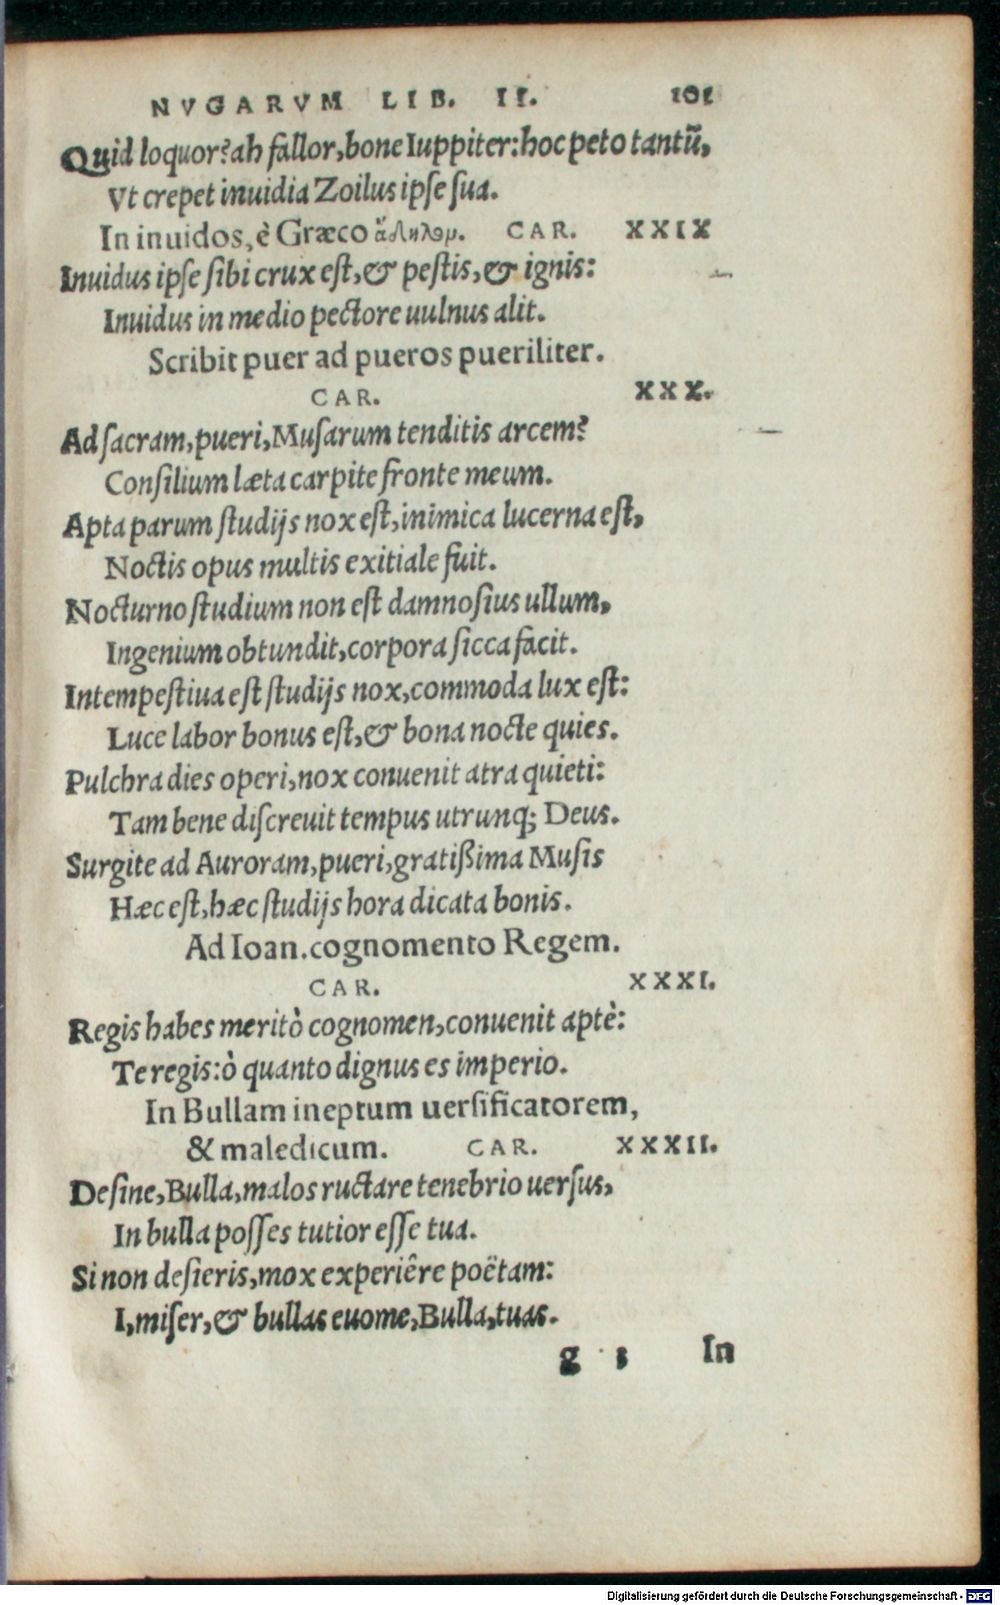 NVGARVM LIB. II. 101
Quid loquor? ah fallor, bone Iuppiter: hoc peto tantũ,
Vt crepet inuidia Zoilus ipse sua.
In inuidos, è Græco ἄδηλου. CAR. XXIX
Inuidus ipse sibi crux est, & pestis, & ignis:
Inuidus in medio pectore uulnus alit.
Scribit puer ad pueros pueriliter.
CAR. XXX.
Ad sacram, pueri, Musarum tenditis arcem?
Consilium læta carpite fronte meum.
Apta parum studijs nox est, inimica lucerna est,
Noctis opus multis exitiale fuit.
Nocturno studium non est damnosius ullum,
Ingenium obtundit, corpora sicca facit.
Intempestiua est studijs nox, commoda lux est:
Luce labor bonus est, & bona nocte quies.
Pulchra dies operi, nox conuenit atra quieti:
Tam bene discreuit tempus utrunq; Deus.
Surgite ad Auroram, pueri, gratißima Musis
Hæc est, hæc studijs hora dicata bonis.
Ad Ioan. cognomento Regem.
CAR. XXXI.
Regis habes meritò cognomen, conuenit aptè:
Te regis: ò quanto dignus es imperio.
In Bullam ineptum uersificatorem,
& maledicum. CAR. XXXII.
Desine, Bulla, malos ructare tenebrio uersus,
In bulla posses tutior esse tua.
Si non desieris, mox experiêre poëtam:
I, miser, & bullas euome, Bulla, tuas.
g 5 In
Digitalisierung gefördert durch die Deutsche Forschungsgemeinschaft - DFG